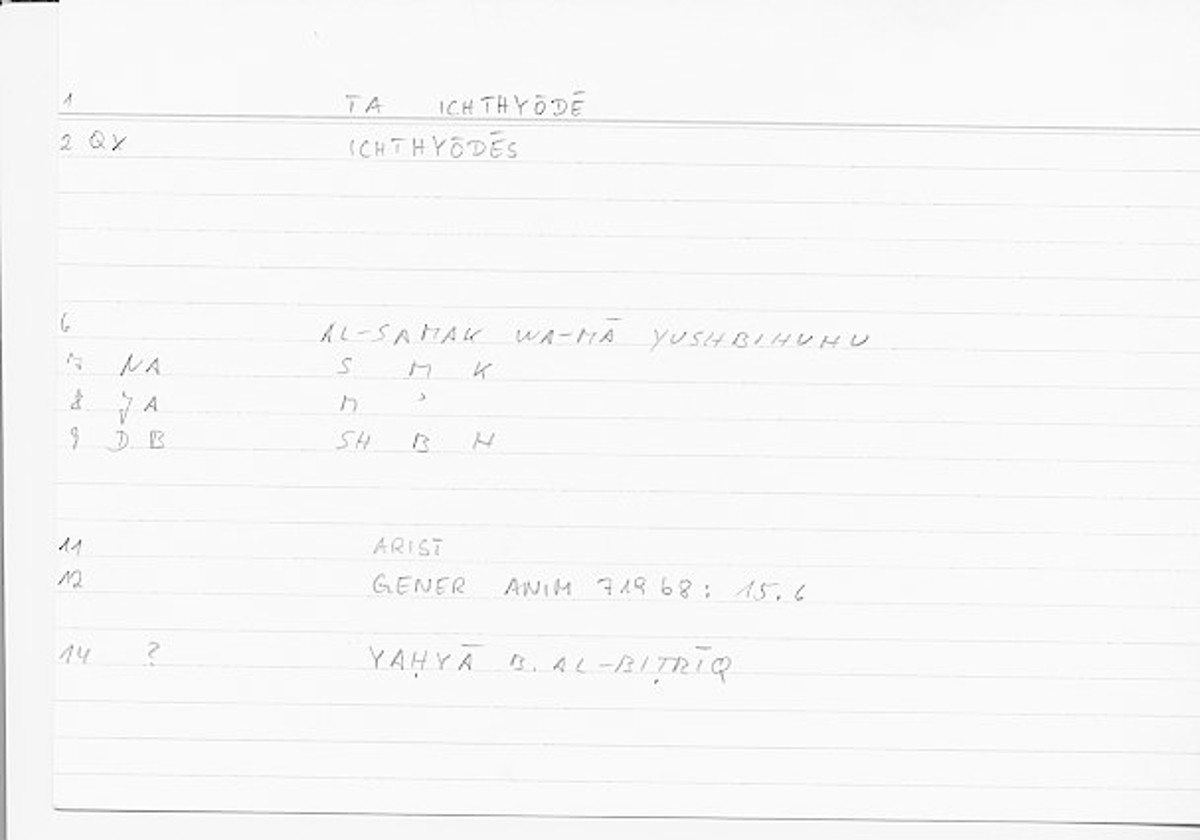 1 TA ICHTHYŌDĒ
2 QX ICHTHYŌDĒS
6 AL-SAMAK WA-MĀ YUSHBIHUHU
7 NA S M K
8 JA M ʾ
9 DB SH B H
11 ARIST
12 GENER ANIM 719 b8: 15.6
14 ? YAḤYĀ B. AL-BIṬRĪQ